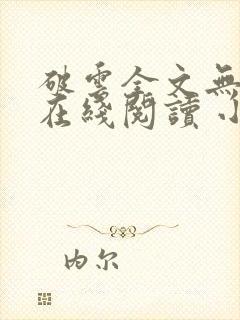 破雲全文無
在綫閱讀小
内尔